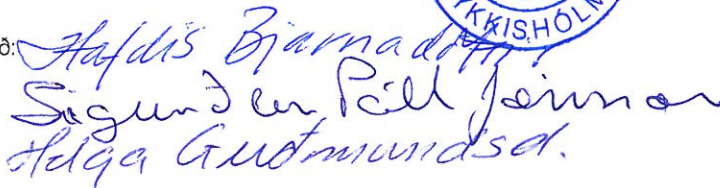 YKKISHÓLM
ð: Hafdís Bjarnadóttir
Sigurður Páll Jónsson
Helga Guðmundsd.